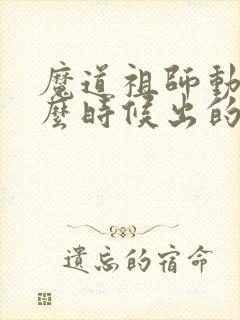 魔道祖師動
麼時候出的
遺忘的宿命